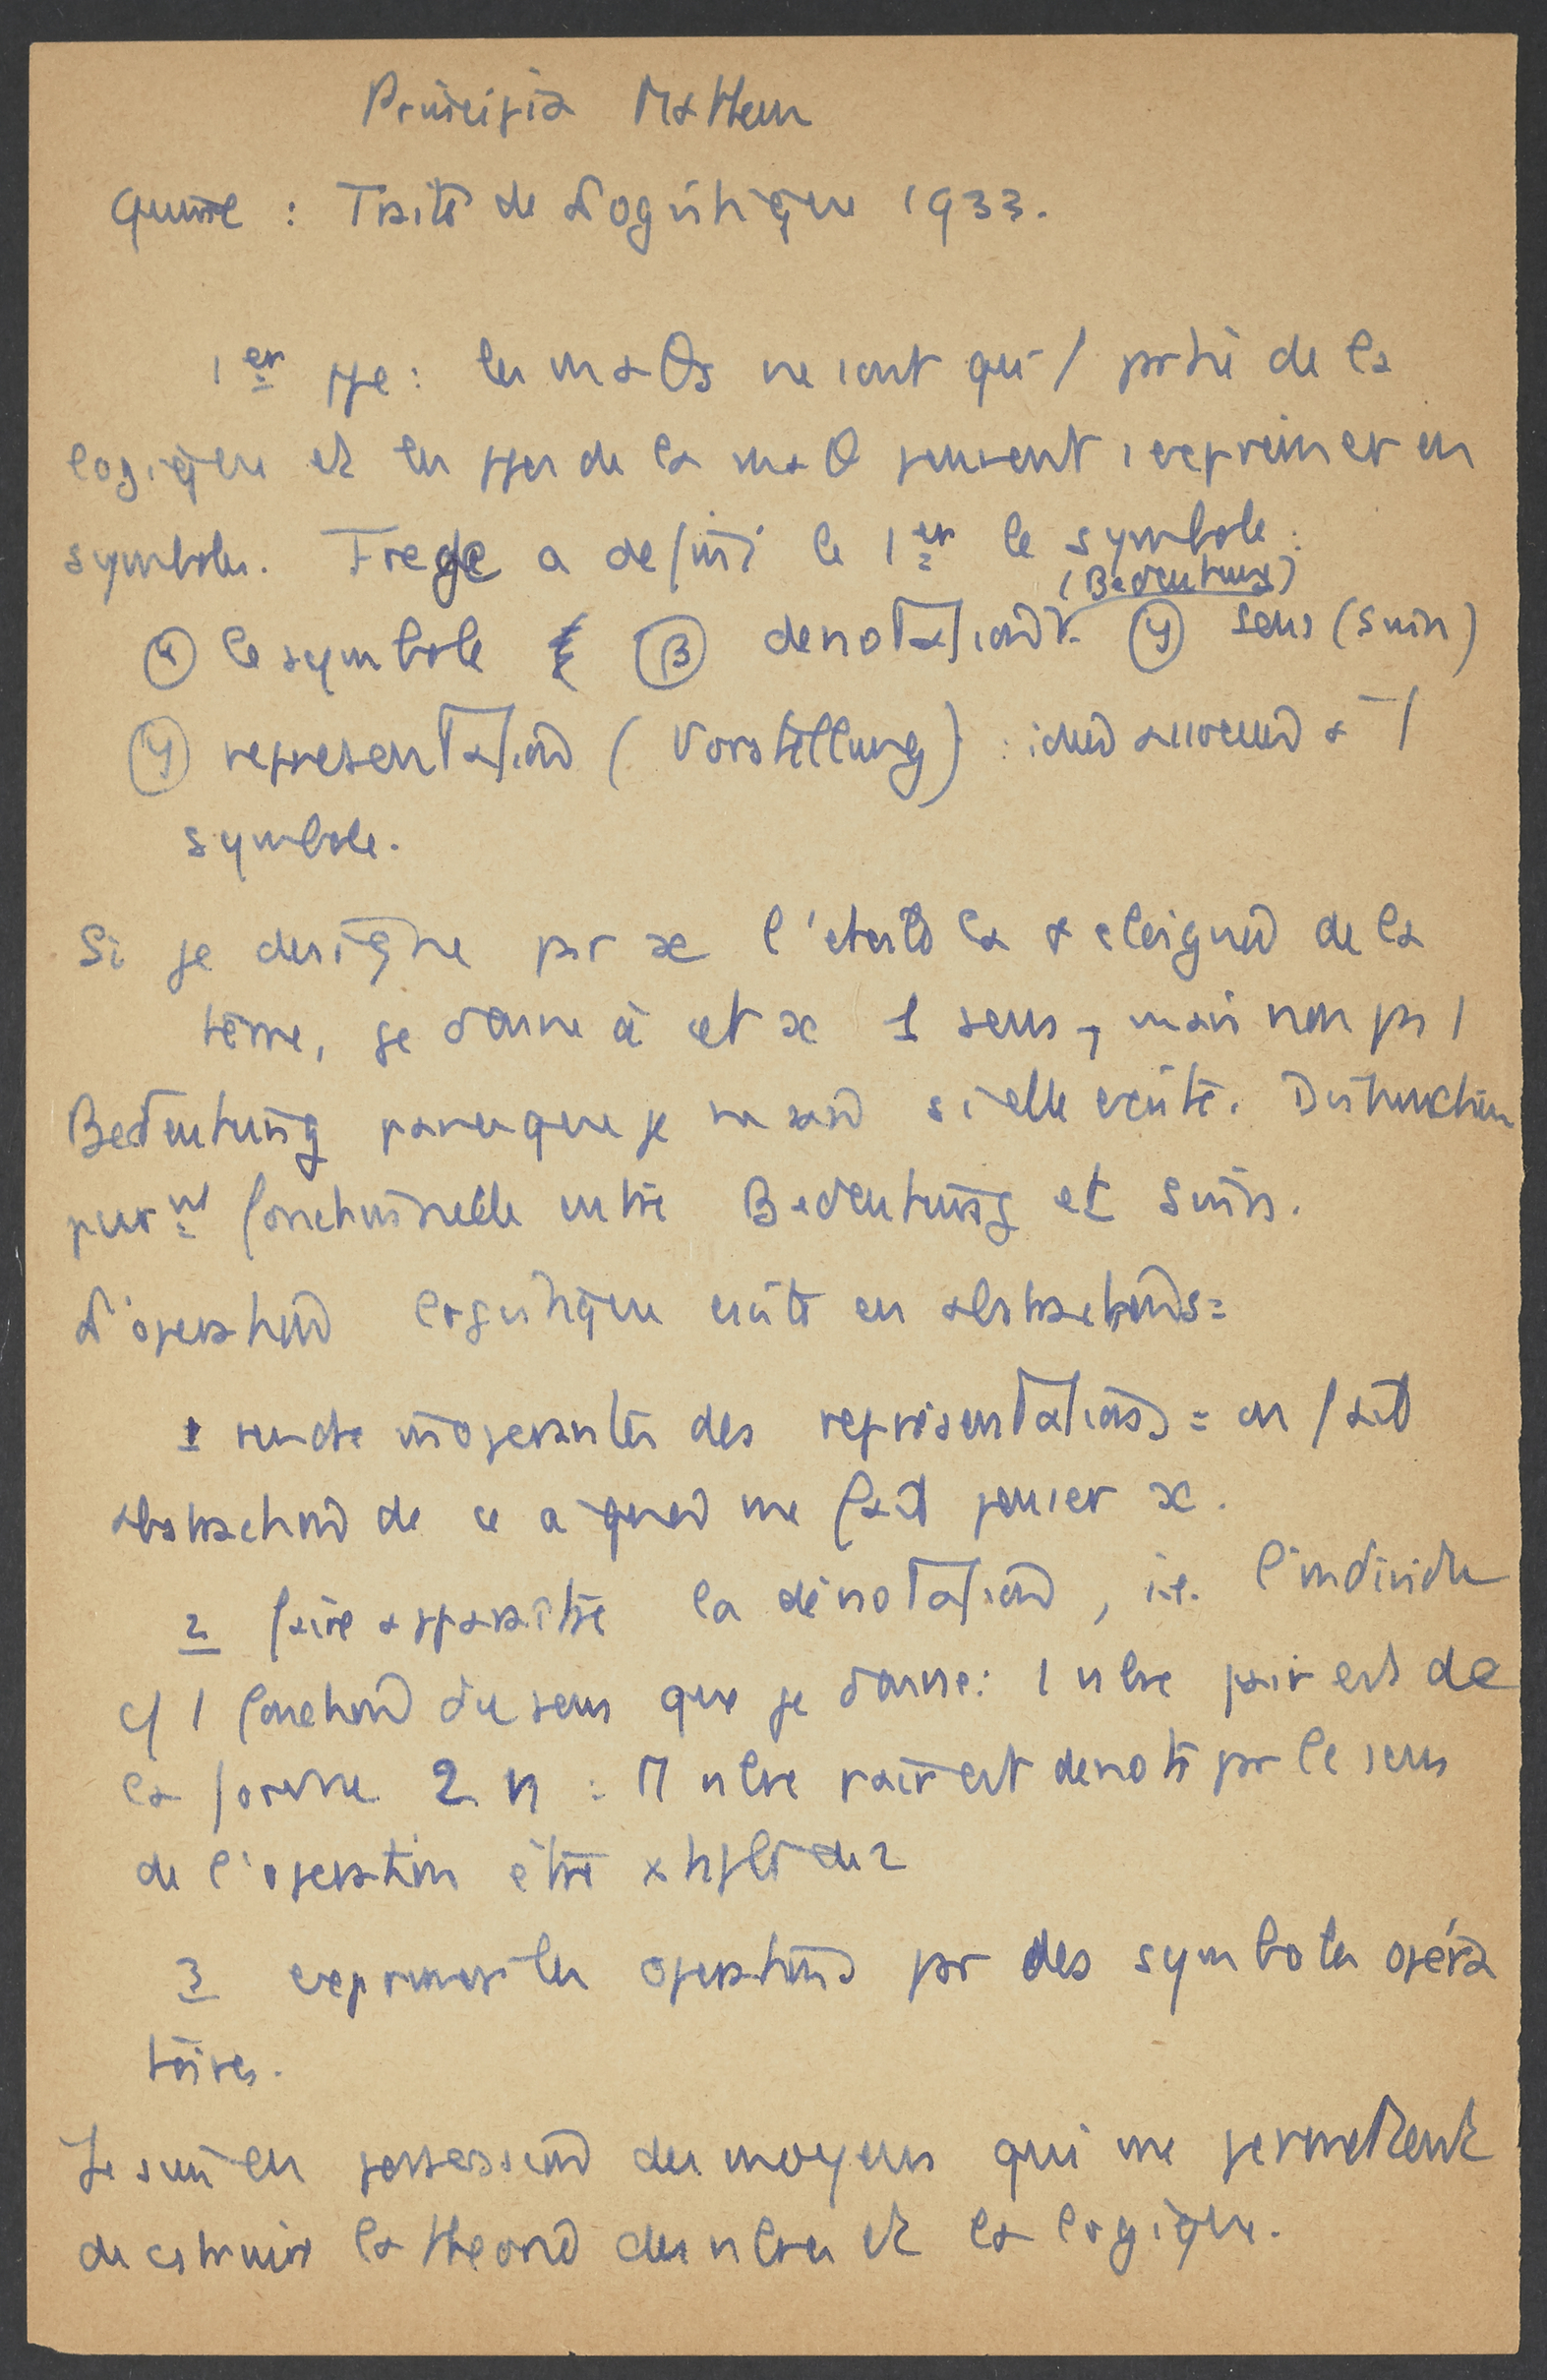 Principia Mathem
Quine : Traité de Logistique 1933.
1er ppe : les maθs ne sont qu' / partie de la
logique et les ppes de la maθ peuvent s'exprimer en
symboles. Frege a defini le 1er le symbole :
(Bedeutung)
α le symbole β denotation γ sens (Sinn)
γ representation (Vorstellung) : associée a /
symbole.
Si je designe par x l'etoile la + eloignée de la
terre, je donne à cet x 1 sens, mais non pas /
Bedeutung parce que je ne sais si elle existe. Distinction
purnt fonctionnelle entre Bedeutung et Sinn.
L'operation logistique existe en abstractions =
1 rendre inoperantes des representations = on fait
abstraction de ce a quoi me fait penser x.
2 faire apparaître la dénotation, i.e. l'individu
c/ / fonction du sens que je donne : 1 nbre pair est de
la forme 2 n : M nbre pair est denoté par le sens
de l'operation être x tiplié de 2
3 exprimer les operations par des symboles opéra
toires.
Je suis en possession des moyens qui me permettent
de cstruire la theorie des nbres et la logique.